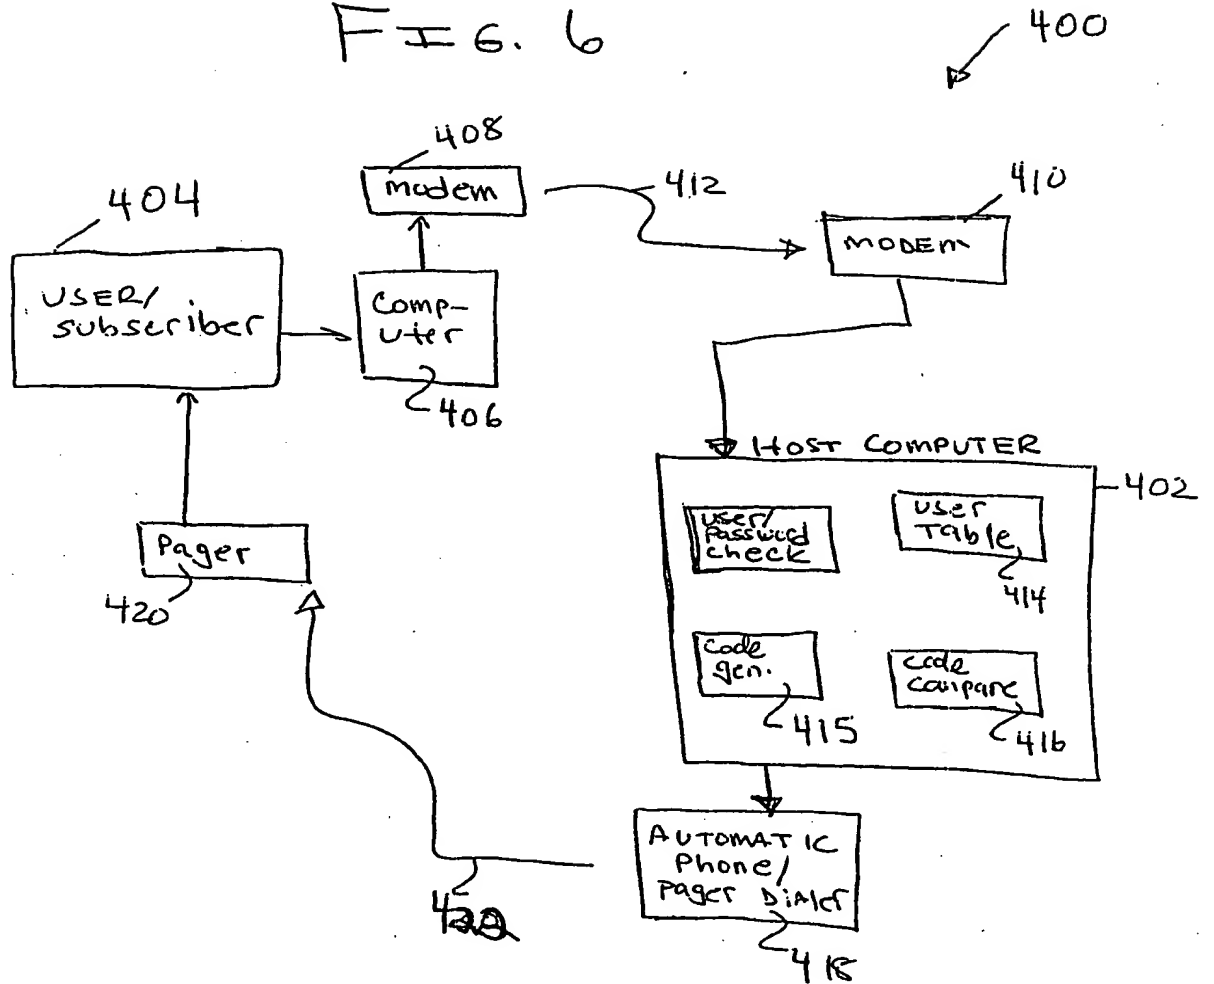 FIG. 6
400
408
modem
412
410
MODEM
404
USER/
subscriber
Comp-
uter
406
HOST COMPUTER
402
User/
Password
check
User
Table
414
Pager
420
Code
gen.
415
Code
Compare
416
AUTOMATIC
Phone/
Pager Dialer
418